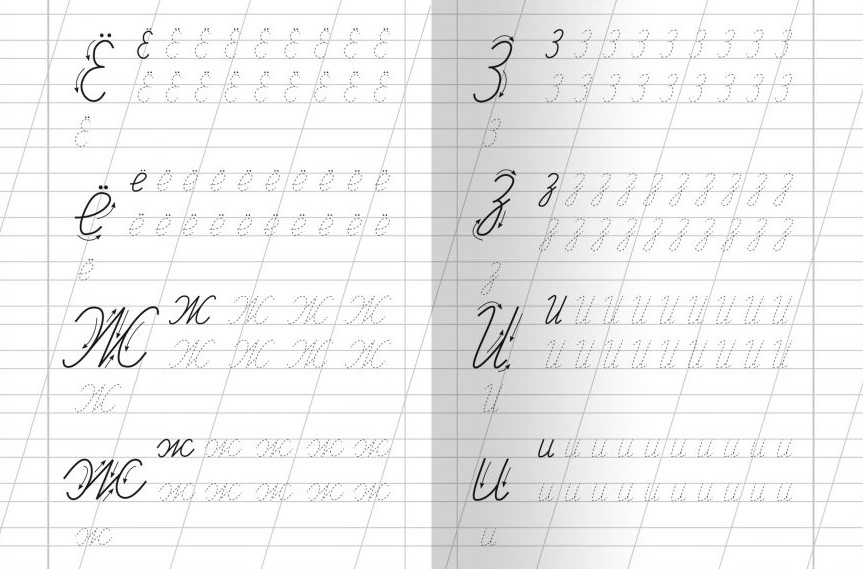 Ё
Ё Ё Ё Ё Ё Ё Ё Ё Ё
Ё Ё Ё Ё Ё Ё Ё Ё Ё
Ё
ё
ё ё ё ё ё ё ё ё ё ё
ё ё ё ё ё ё ё ё ё ё
ё
Ж
Ж Ж Ж Ж
Ж Ж Ж Ж
Ж
ж
ж ж ж ж ж
ж ж ж ж ж
ж
З
З З З З З З З З З
З З З З З З З З З
З
з
з з з з з з з з з з
з з з з з з з з з з
з
И
И И И И И И И И И
И И И И И И И И И
И
и
и и и и и и и и и и
и и и и и и и и и и
и